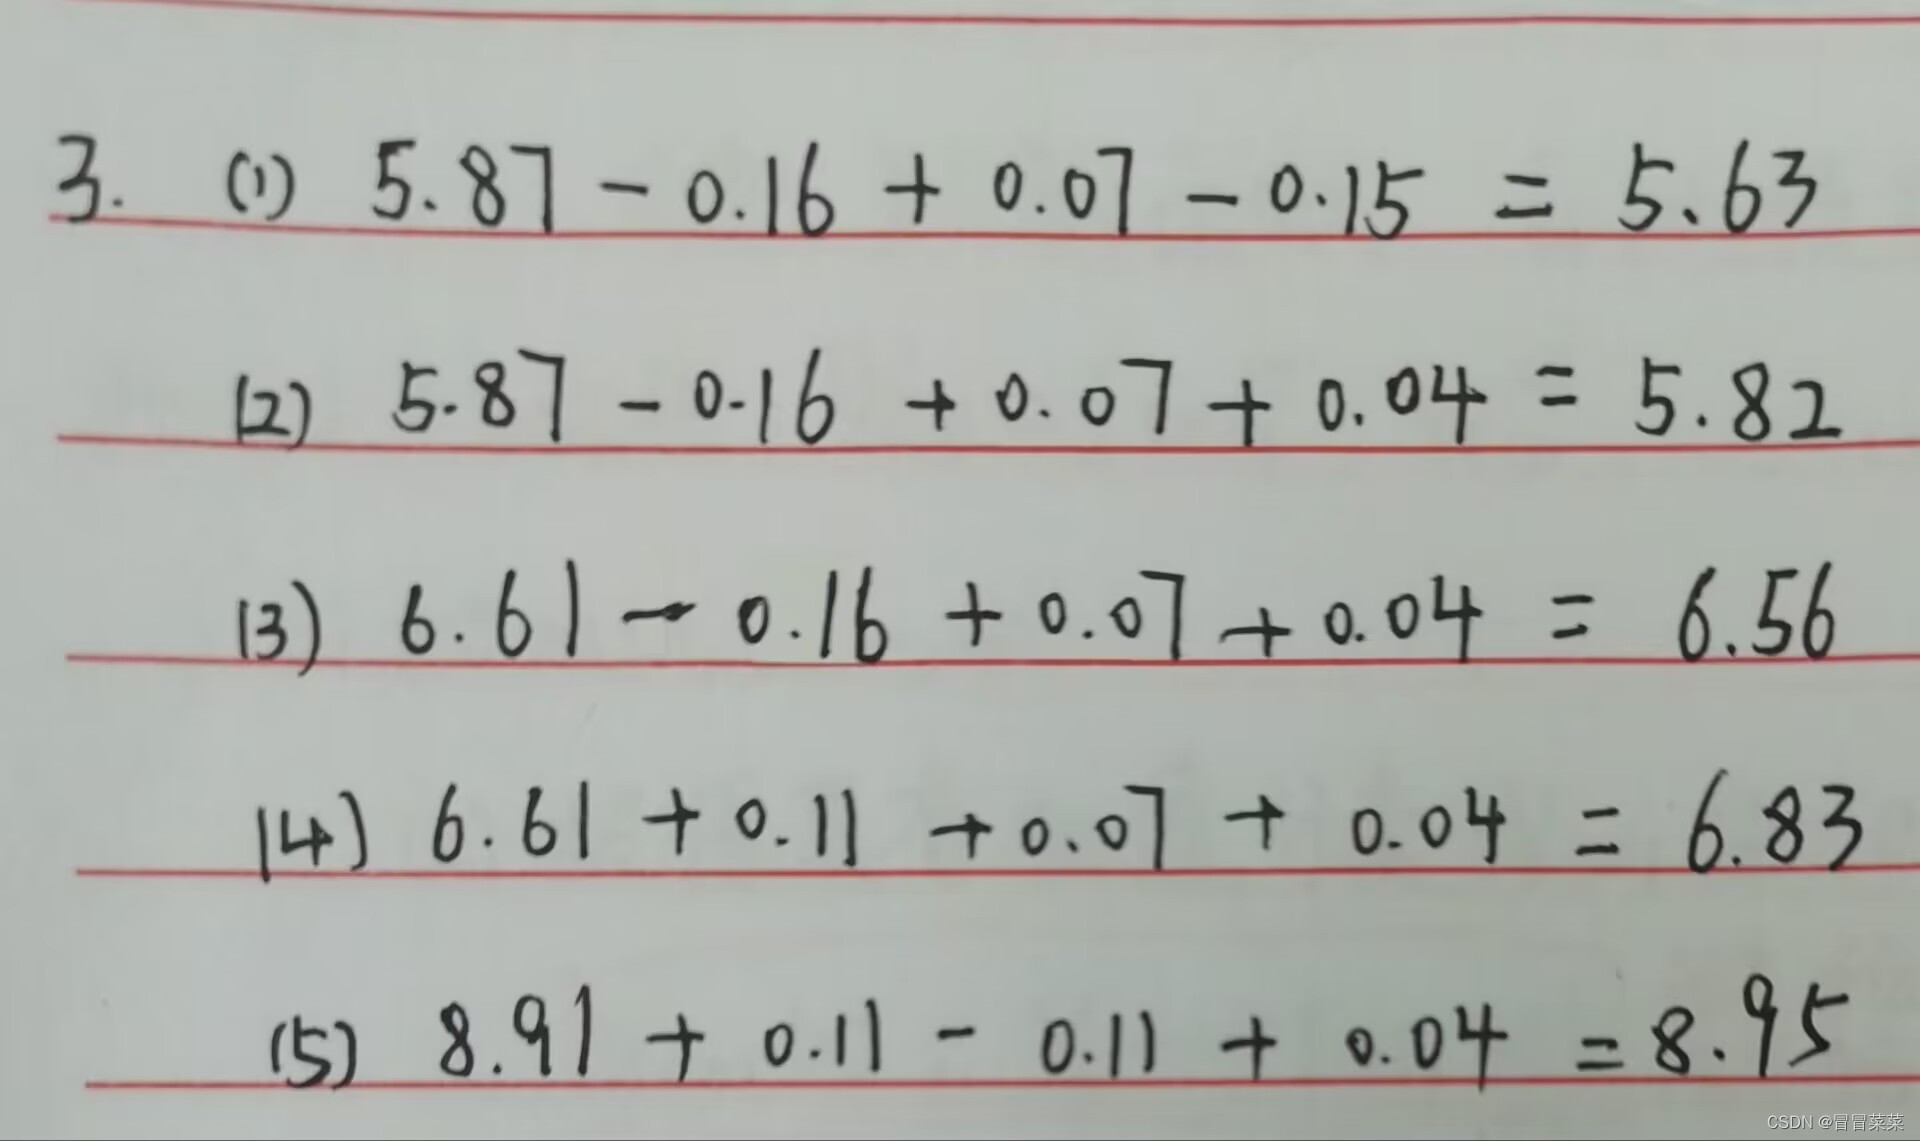 3. (1) 5.87 - 0.16 + 0.07 - 0.15 = 5.63
(2) 5.87 - 0.16 + 0.07 + 0.04 = 5.82
(3) 6.61 - 0.16 + 0.07 + 0.04 = 6.56
(4) 6.61 + 0.11 + 0.07 + 0.04 = 6.83
(5) 8.91 + 0.11 - 0.11 + 0.04 = 8.95
CSDN @冒冒菜菜